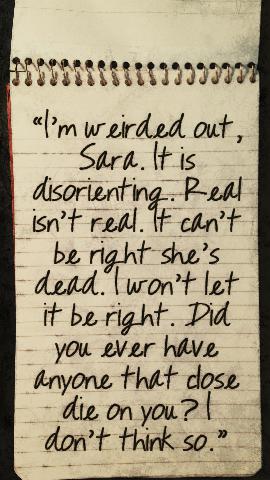 “I’m weirded out,
Sara. It is
disorienting. Real
isn’t real. It can’t
be right she’s
dead. I won’t let
it be right. Did
you ever have
anyone that close
die on you? I
don’t think so.”